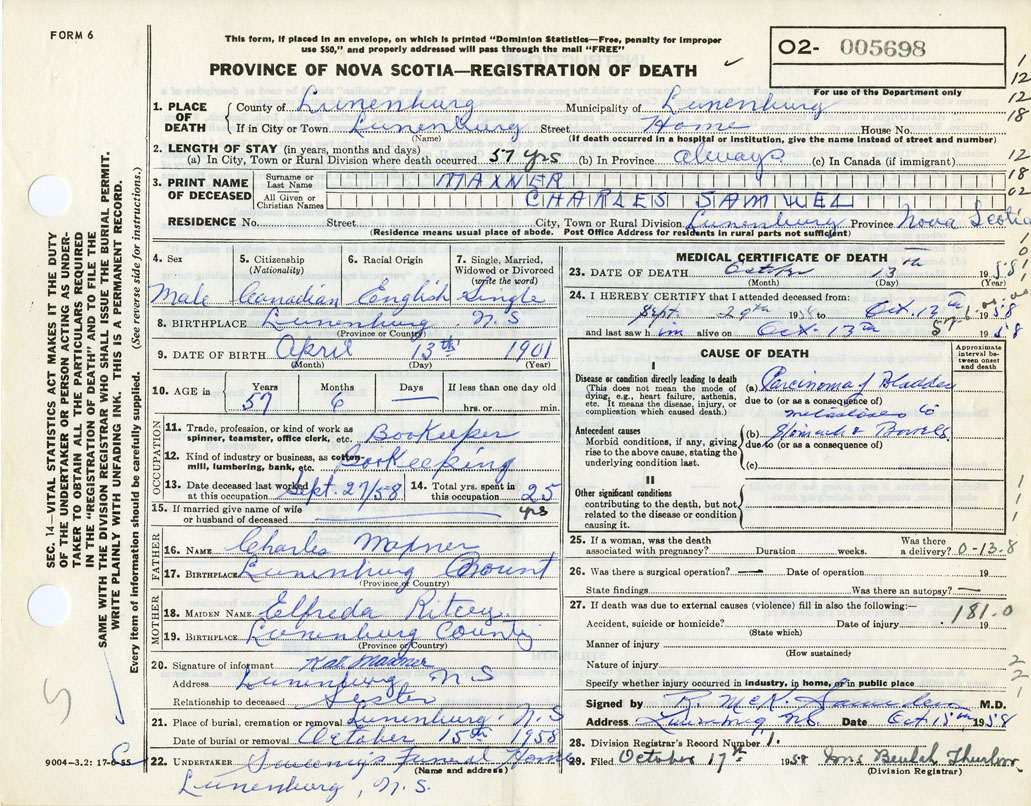 FORM 6
This form, if placed in an envelope, on which is printed "Dominion Statistics—Free, penalty for improper
use $50," and properly addressed will pass through the mail "FREE"
O2- 005698
For use of the Department only
PROVINCE OF NOVA SCOTIA—REGISTRATION OF DEATH
1. PLACE OF DEATH
County of Lunenburg Municipality of Lunenburg
If in City or Town Lunenburg Street Home House No.
(Name) (If death occurred in a hospital or institution, give the name instead of street and number)
2. LENGTH OF STAY (in years, months and days)
(a) In City, Town or Rural Division where death occurred 57 yrs (b) In Province always (c) In Canada (if immigrant)
3. PRINT NAME OF DECEASED
Surname or Last Name MAXNER
All Given or Christian Names CHARLES SAMUEL
RESIDENCE No. Street City, Town or Rural Division Lunenburg Province Nova Scotia
(Residence means usual place of abode. Post Office Address for residents in rural parts not sufficient)
4. Sex 5. Citizenship (Nationality) 6. Racial Origin 7. Single, Married, Widowed or Divorced (write the word)
Male Canadian English Single
8. BIRTHPLACE Lunenburg N.S
(Province or Country)
9. DATE OF BIRTH April 13th 1901
(Month) (Day) (Year)
10. AGE in Years 57 Months 6 Days — If less than one day old hrs. or min.
OCCUPATION
11. Trade, profession, or kind of work as spinner, teamster, office clerk, etc. BooKeeper
12. Kind of industry or business, as cotton-mill, lumbering, bank, etc. BooKeeping
13. Date deceased last worked at this occupation Sept. 27/58 14. Total yrs. spent in this occupation 25 yrs
15. If married give name of wife or husband of deceased
FATHER
16. NAME Charles Maxner
17. BIRTHPLACE Lunenburg
(Province or Country)
MOTHER
18. MAIDEN NAME Elfreda Ritcey
19. BIRTHPLACE Lunenburg County
(Province or Country)
20. Signature of informant Maxner
Address Lunenburg N S
Relationship to deceased Sister
21. Place of burial, cremation or removal Lunenburg. N.S
Date of burial or removal October 15th 1958
22. UNDERTAKER Sweeny's Funeral Home
(Name and address)
Lunenburg, N.S.
MEDICAL CERTIFICATE OF DEATH
23. DATE OF DEATH October 13th 1958
(Month) (Day) (Year)
24. I HEREBY CERTIFY that I attended deceased from:
Sept. 29th 1958 to Oct. 13th 1958
and last saw him alive on Oct. 13th 1958
CAUSE OF DEATH
Approximate interval between onset and death
I
Disease or condition directly leading to death (a) Carcinoma of Bladder
(This does not mean the mode of dying, e.g., heart failure, asthenia, etc. It means the disease, injury, or complication which caused death.)
due to (or as a consequence of)
to
Antecedent causes (b) Stomach & Bowels.
Morbid conditions, if any, giving rise to the above cause, stating the underlying condition last.
due to (or as a consequence of)
(c)
II
Other significant conditions
contributing to the death, but not related to the disease or condition causing it.
25. If a woman, was the death associated with pregnancy? Duration weeks. Was there a delivery? 0-13-8
26. Was there a surgical operation? — Date of operation 19
State findings Was there an autopsy? —
27. If death was due to external causes (violence) fill in also the following:—
181.0
Accident, suicide or homicide? Date of injury 19
(State which)
Manner of injury
(How sustained)
Nature of injury
Specify whether injury occurred in industry, in home, or in public place
Signed by R. McK. M.D.
Address Lunenburg NS. Date Oct 15th 1958
28. Division Registrar's Record Number 1.
29. Filed October 17th 1958 Mrs Beulah
(Division Registrar)
SEC. 14—VITAL STATISTICS ACT MAKES IT THE DUTY
OF THE UNDERTAKER OR PERSON ACTING AS UNDER-
TAKER TO OBTAIN ALL THE PARTICULARS REQUIRED
IN THE "REGISTRATION OF DEATH" AND TO FILE THE
SAME WITH THE DIVISION REGISTRAR WHO SHALL ISSUE THE BURIAL PERMIT.
WRITE PLAINLY WITH UNFADING INK. THIS IS A PERMANENT RECORD.
Every item of information should be carefully supplied. (See reverse side for instructions.)
9004—3.2: 17-6-55